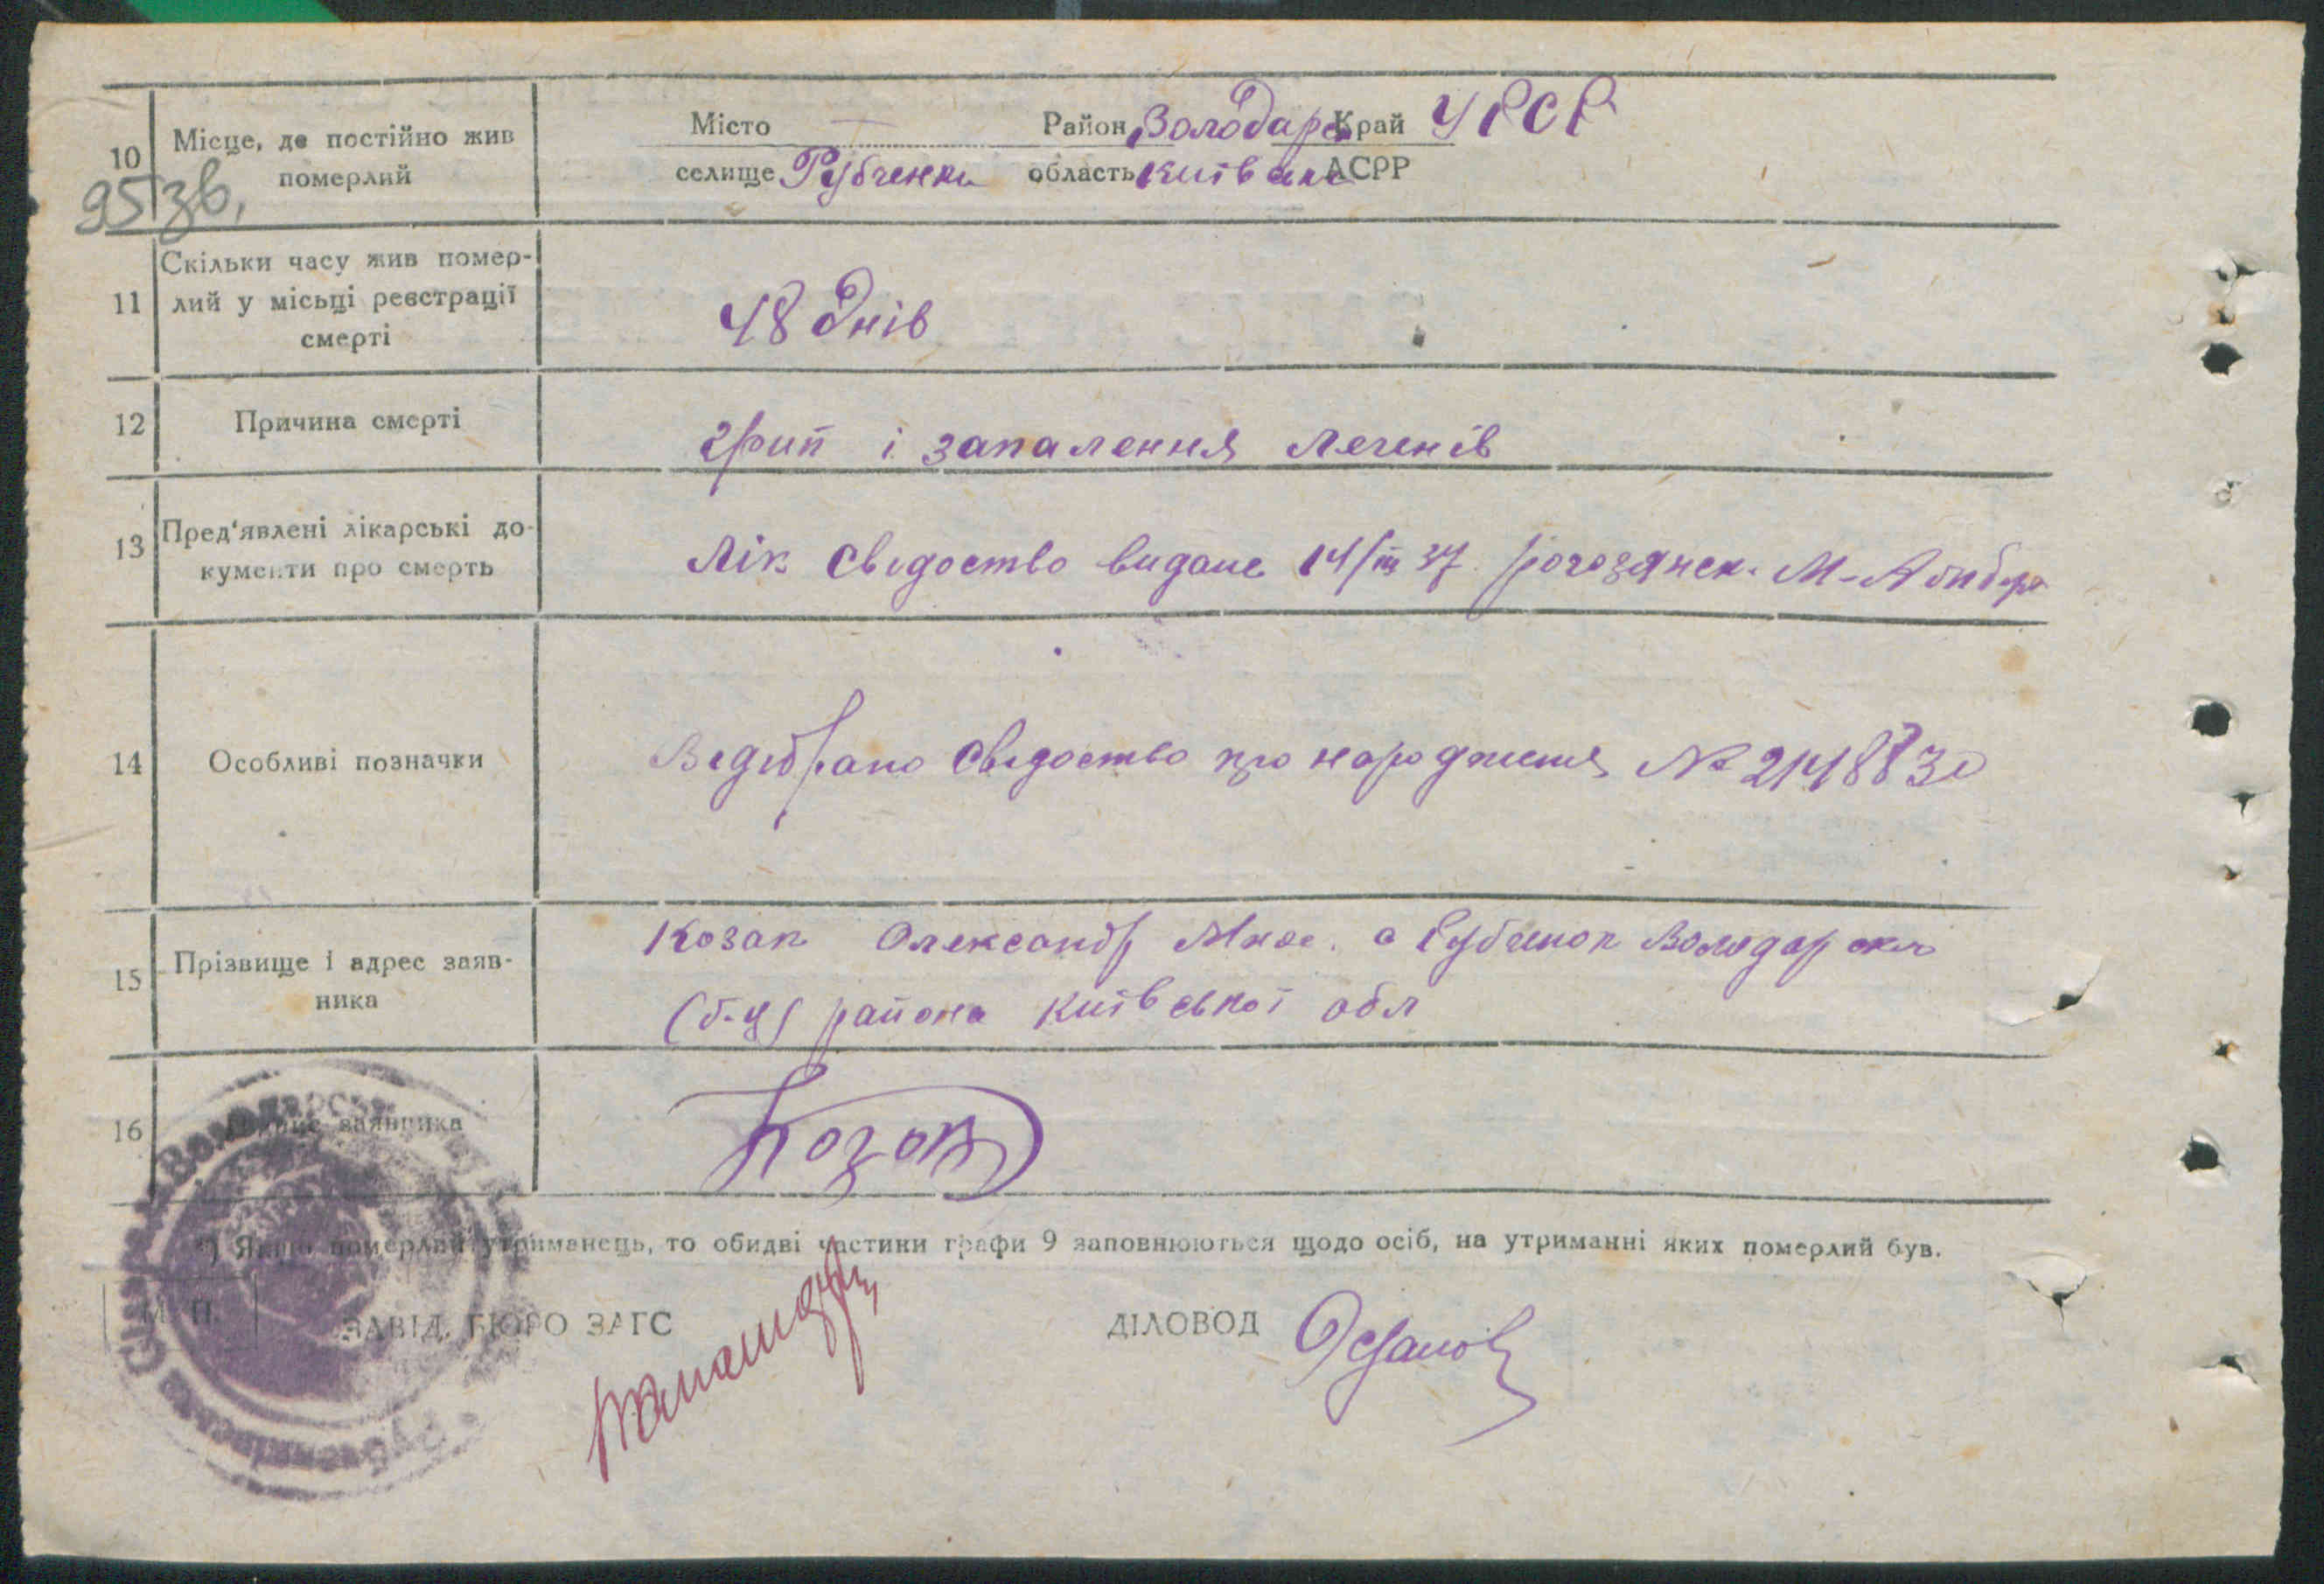 10 Місце, де постійно жив померлий
Місто — Район Володарс Край УРСР
селище Рубченки область Київська АСРР
95 зв.
11 Скільки часу жив помер-
лий у місьці реєстрації
смерті
48 днів
12 Причина смерті
грип і запалення легенів
13 Пред'явлені лікарські до-
кументи про смерть
Лік свідоство видане 14/III 37 рогозянск. М-Амбур
14 Особливі позначки
Відібрано свідоство про народження № 2148830
15 Прізвище і адрес заяв-
ника
Козак Олександр с Рубченок Володарськ
(б-ц) района Київської обл
16 Підпис заявника
Козак
*) Якщо померлий утриманець, то обидві частини графи 9 заповнюються щодо осіб, на утриманні яких померлий був.
М. П.
ЗАВІД. БЮРО ЗАГС
ДІЛОВОД